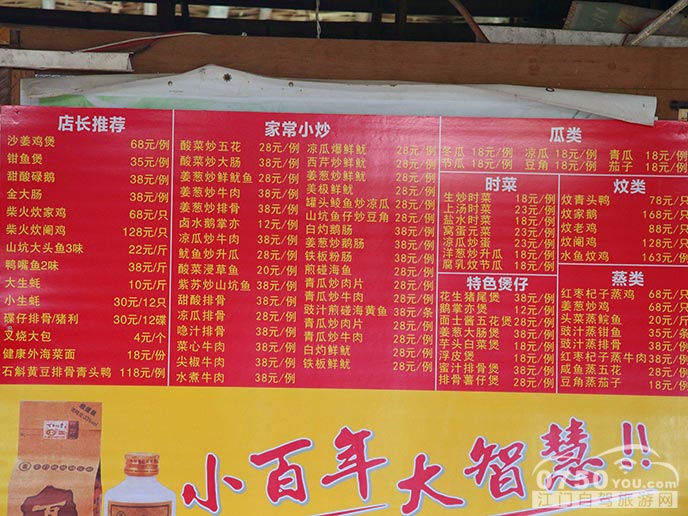 店长推荐
沙姜鸡煲 68元/例
钳鱼煲 35元/例
甜酸碌鹅 38元/例
金大肠 38元/例
柴火炆家鸡 68元/只
柴火炆阉鸡 128元/只
山坑大头鱼3味 22元/斤
鸭嘴鱼2味 38元/斤
大生蚝 10元/斤
小生蚝 30元/12只
碟仔排骨/猪利 30元/12碟
叉烧大包 4元/个
健康外海菜面 18元/份
石斛黄豆排骨青头鸭 118元/例
家常小炒
酸菜炒五花 28元/例
酸菜炒大肠 38元/例
姜葱炒鲜鱿鱼 28元/例
姜葱炒牛肉 38元/例
姜葱炒排骨 38元/例
卤水鹅掌亦 12元/例
凉瓜炒牛肉 38元/例
鱿鱼炒升瓜 28元/例
酸菜浸草鱼 20元/例
紫苏炒山坑鱼 38元/例
甜酸排骨 38元/例
凉瓜排骨 28元/例
隐汁排骨 38元/例
菜心牛肉 38元/例
尖椒牛肉 38元/例
水煮牛肉 38元/例
凉瓜爆鲜鱿 28元/例
西芹炒鲜鱿 28元/例
姜葱炒鲜鱿 28元/例
美极鲜鱿 28元/例
罐头鲮鱼炒凉瓜 28元/例
山坑鱼仔炒豆角 28元/例
白灼鹅肠 38元/例
姜葱炒鹅肠 38元/例
铁板粉肠 38元/例
煎碰海鱼 28元/例
青瓜炒肉片 28元/例
青瓜炒牛肉 28元/例
豉汁煎碰海黄鱼 38元/条
青瓜炒肉片 28元/例
青瓜炒牛肉 28元/例
白灼鲜鱿 28元/例
铁板鲜鱿 28元/例
瓜类
冬瓜 18元/例 凉瓜 18元/例 青瓜 18元/例
节瓜 18元/例 豆角 18元/例 茄子 18元/例
时菜
生炒时菜 18元/例
上汤时菜 23元/例
盐水时菜 18元/例
窝蛋元菜 23元/例
凉瓜炒蛋 23元/例
洋葱炒升瓜 18元/例
腐乳炆节瓜 18元/例
炆类
炆青头鸭 78元/只
炆家鹅 168元/只
炆老鸡 88元/只
炆阉鸡 128元/只
水鱼炆鸡 163元/例
特色煲仔
花生猪尾煲 38元/例
鹅掌亦煲 12元/例
面士酱五花煲 28元/例
姜葱大肠煲 38元/例
芋头白菜煲 18元/例
浮皮煲 18元/例
蜜汁排骨煲 38元/例
排骨薯仔煲 28元/例
蒸类
红枣杞子蒸鸡 68元/只
姜葱炒鸡 68元/只
头菜蒸鲩鱼 20元/例
豉汁蒸钳鱼 35元/条
豉汁蒸排骨 38元/例
红枣杞子蒸牛肉 38元/例
咸鱼蒸五花 28元/例
豆角蒸茄子 18元/例
小百年大智慧!!
0750YOU.com
江门自驾旅游网